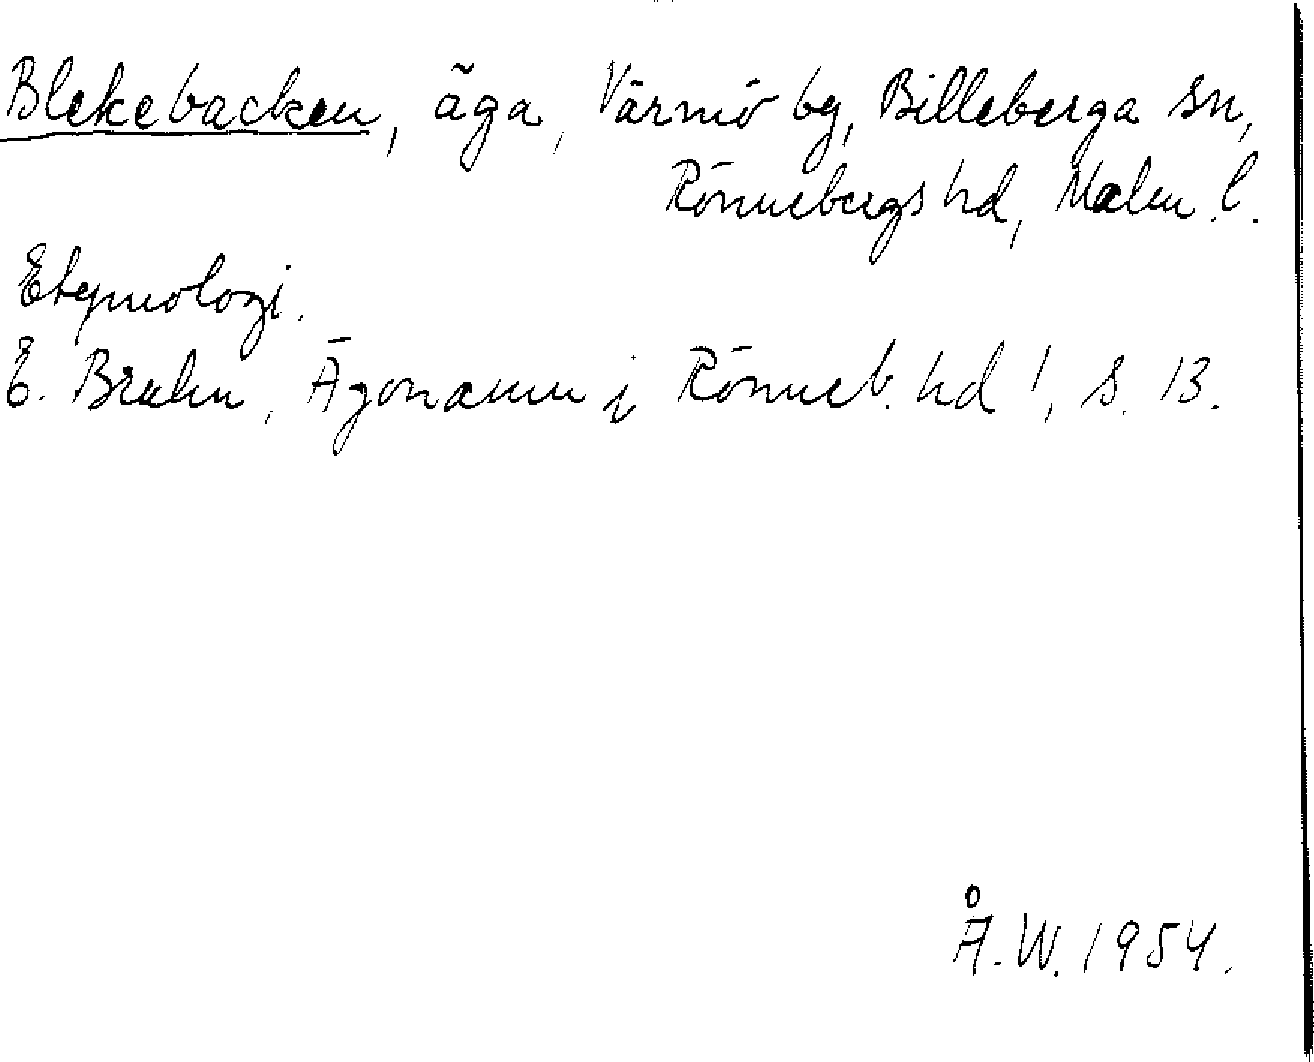 Blekebacken, äga, Värmö by, Billeberga sn,
Rönnebergs hd, Malm. l.
Etymologi.
E. Bruhn, Ägonamn i Rönneb. hd 1, s. 13.
Å. W. 1954.